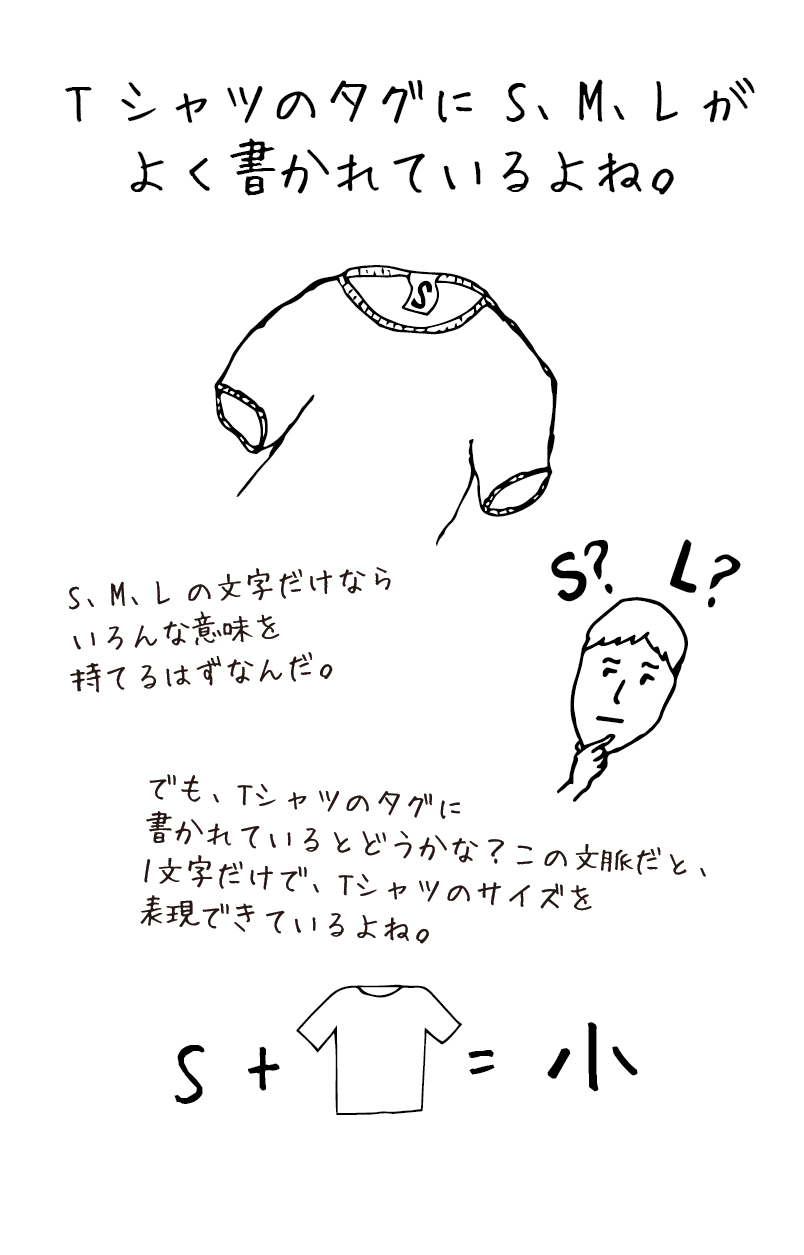 Tシャツのタグに S、M、Lが
よく書かれているよね。
S
S? L?
S、M、L の文字だけなら
いろんな意味を
持てるはずなんだ。
でも、Tシャツのタグに
書かれているとどうかな？この文脈だと、
1文字だけで、Tシャツのサイズを
表現できているよね。
S + = 小